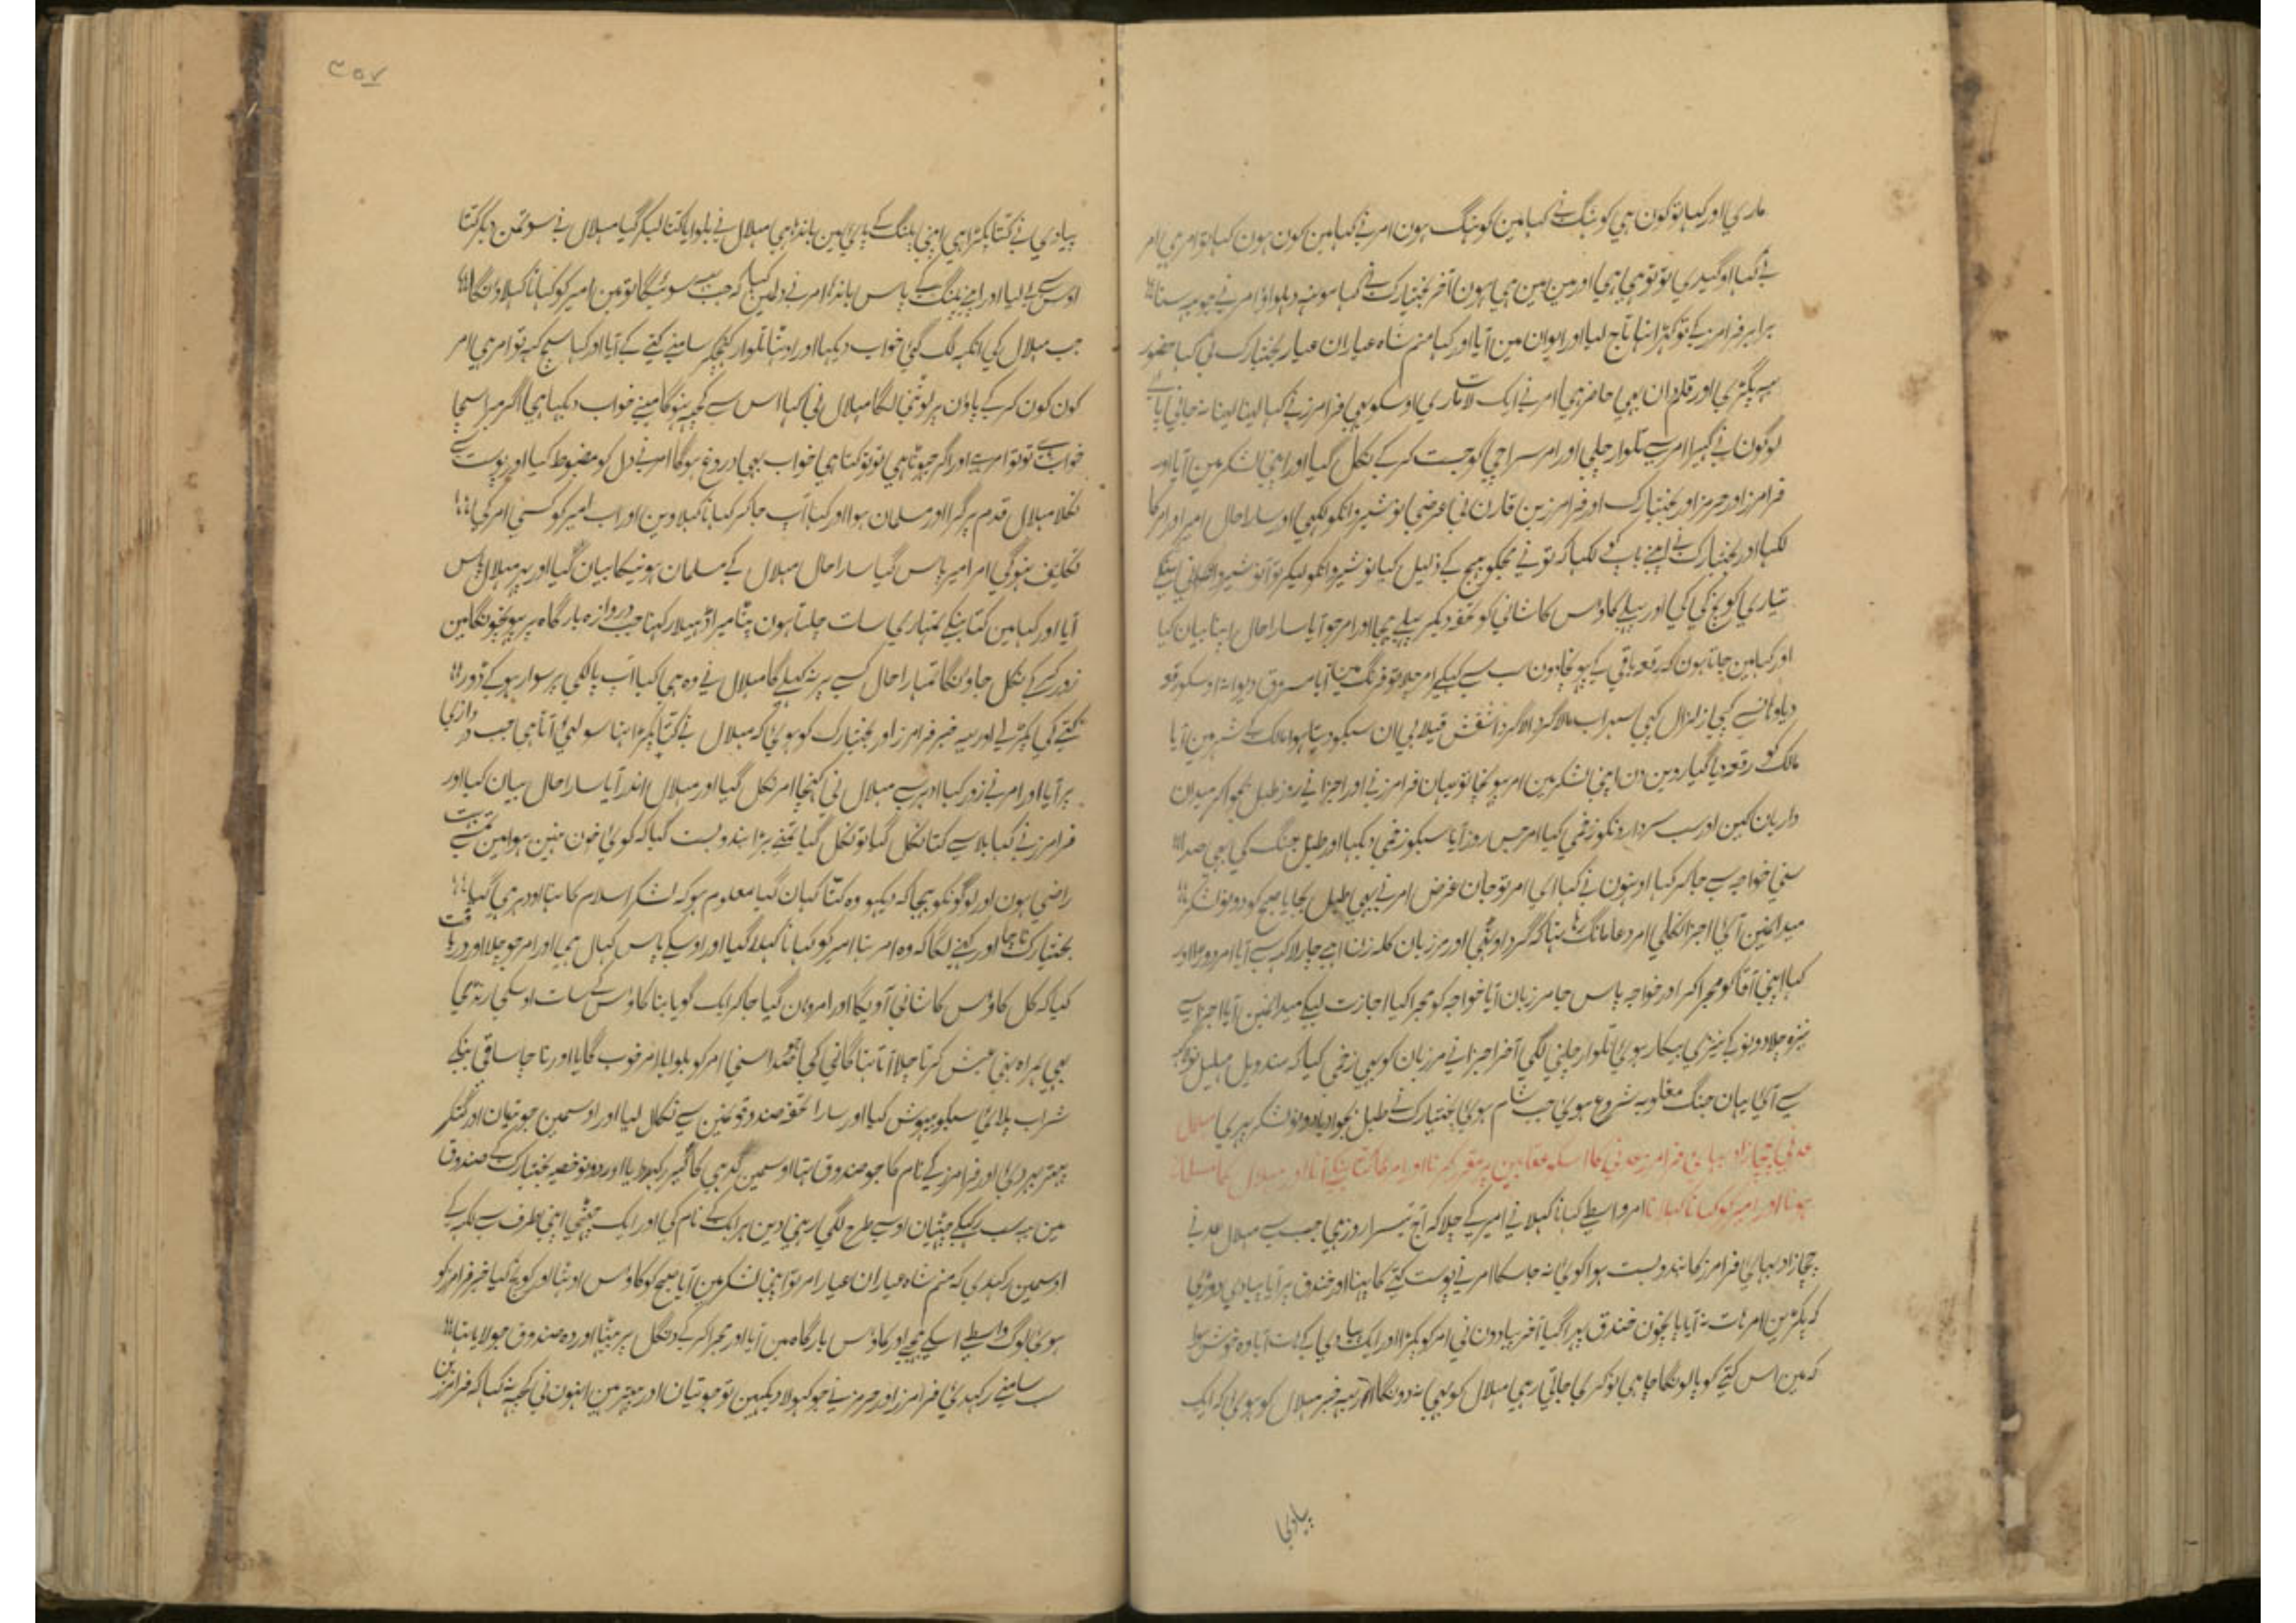 ماری اور کہا تو کون ہی کوہنگ نے کہا مین کوہنگ ہون امر نے کہا مین کون ہون کہا تو امر ہی امر
نے کہا او گیدی تو تو ہی ہی اور مین مین ہی ہون آخر بختیارک نے کہا مونہہ دہلواو امر نے جو یہ سنا
برابر فرامرز کے تو کہڑا تہا تاج لیا اور ایوان مین آیا اور کہا منم شاہ عیاران عیار بختیارک نی کہا حضور
یہ پگڑی اور قلمدان بہی حاضر ہی امر نے ایک لات ماری اوسکو بہی فرامرز نے کہا لینا لینا نہ جانی پاے
لوگون نے گہیرا امر سے تلوار چلی اور امر سراچی کو جست کرکے نکل گیا اور اپنی لشکر مین آیا اور
فرامرز اور حرمز اور بختیارک اور فرامرز بن قارن نی عرضی نوشیروانکو لکہی اور سارا حال امیر اور امر کا
لکہا اور بختیارک نے اپنے باپ کو لکہا کہ تو نے مجکو بہیج کے ذلیل کیا نوشیروانکو لیکر تو آ نوشیروان نی
تیاری کوچ کی کی اور پہلے کاوس کاشانی کو تحفہ دیکر پہلے بہیجا اور امر جو آیا سارا حال اپنا بیان کیا
اور کہا مین جاتا ہون کہ رقعہ باقی کے پہونچادون سب سے کہکے امر چلا تو فرنگ مین آیا مسروق دیوانہ اوسکو رقعہ
مالک کو رقعہ دیا گیاروین دن اپنی لشکر مین امر پہونچا تو یہان فرامرز نے اور اجزا نے روز طبل بجواکر میدان
داریان کین اور سب سردارونکو زخمی کیا امر جس روز آیا سبکو زخمی دیکہا اور طبل جنگ کی بہی صدا
سنی خواجہ سے جا کر کہا اونہون نے کہا ای امر تو جان غرض امر نے بہی طبل بجایا صبح کو دونو لشکر
میدانمین آئی اجزا نکلی امر دعا مانگ رہا تہا کہ گرد اوٹہی اور مرزبان کلہ زن اپنے چار لاکہہ سے آیا امر دوڑا اور
کہا اپنی آقا کو مجرا کر اور خواجہ پاس جا مرزبان آیا خواجہ کو مجرا کیا اجازت لیکے میدانمین آیا اجزا سے
نیزہ چلا دونو کے نیزی بیکار ہوئی تلوار چلنی لگی آخر اجزا نے مرزبان کو بہی زخمی کیا کہ سندویل
سے آئی یہان جنگ مغلوبہ شروع ہوئی جب شام ہوئی بختیارک نے طبل بجوا دیا دونو لشکر پہری مہلال
عدنی چچازاد بہائی فرامرز عدنی کا اسکو مقابین پر مقرر کرنا اور امر کا کتا بنکے آنا اور مہلال کا مسلمان
ہونا اور امیر کو کہانا کہلانا امر واسطے کہانا کہلانے امیر کے چلا کہ آج تیسرا روز ہی جب سے مہلال عدنے
چچازاد بہائی فرامرز کا بندوبست ہوا کوئی نہ جا سکا امر نے پوست کتے کا پہنا اور خندق پر آیا پیادی دوڑی
کہ پکڑین امر ہات نہ آیا پانچون خندق پہرا گیا آخر پیادون نی امر کو پکڑا اور ایک پیادی کے ہات آیا وہ خوش ہوا
کہ مین اس کتے کو پالونگا چاہی نوکری جاتی رہی مہلال کو بہی نہ دونگا آخر یہ خبر مہلال کو ہوئی کہ ایک
پیادی
۳۵۷
پیادی نے کتا پکڑا ہی اپنی پلنگ کے پائی مین باندہا ہی مہلال نے بلوایا کتا لیکر گیا مہلال نے سو تمن دیکر کتا
اوس سے لیا اور اپنے پلنگ کے پاس باندہا امر نے دلمین کہا کہ جب یہ سوئیگا تو مین امیر کو کہانا کہلاونگا
جب مہلال کی آنکہہ لگ گئی خواب دیکہا اور اوٹہا تلوار کہنچکر سامنے کتے کے آیا اور کہا سچ کہہ تو امر ہی امر
کون کون کرکے پاون پر لوٹنی لگا مہلال نی کہا اس سے کچہہ نہوگا مینے خواب دیکہا ہی اگر میرا سچا
خواب ہے تو تو امر ہے اور اگر جہوٹا ہی تو تو کتا ہی خواب بہی دروغ ہوگا امر نے دل کو مضبوط کیا اور پوست سے
نکلا مہلال قدم پر گرا اور مسلمان ہوا اور کہا آپ جا کر کہانا کہلاوین اور اب امیر کو کسی امر کی
تکلیف نہوگی امر امیر پاس گیا سارا حال مہلال کے مسلمان ہونیکا بیان کیا اور پہر مہلال پاس
آیا اور کہا مین کتا بنکے تمہاری سات چلتا ہون پٹا میرا ڈہیلا رکہنا جب دروازہ بارگاہ پر پہونچونگا مین
زور کرکے نکل جاونگا تمہارا حال کسی پر نہ کہلے گا مہلال نے وہ ہی کیا آپ پالکی پر سوار ہو کے ڈور
کتے کی پکڑ لے اور یہ خبر فرامرز اور بختیارک کو ہوئی کہ مہلال نے کتا پکڑا تہا سو لئی آتا ہی جب دروازی
پر آیا اور امر نے زور کیا اودہر سے مہلال نی کہنچا امر نکل گیا اور مہلال اندر آیا سارا حال بیان کیا اور
فرامرز نے کہا بلا سے کتا نکل گیا تو نکل گیا تمنے بڑا بندوبست کیا کہ کوئی خون نہین ہوا مین تمسے بہت
راضی ہون اور لوگونکو بہیجا کہ دیکہو وہ کتا کہان گیا معلوم ہو کہ لشکر اسلام کا تہا اودہر ہی گیا
بختیارک ناچا اور کہنے لگا کہ وہ امر تہا امیر کو کہانا کہلا گیا اور اوسکے پاس کہال ہی اور امر جو چلا اور دریافت
کیا کہ کل کاوس کاشانی آویگا اور امر وہان گیا جا کر ایک گویا بنا کاوس کے سات اوسکی رنڈی
بہی ہمراہ تہی عیش کرتا چلا آتا تہا گانی کی جو صدا سنی امر کو بلوایا امر خوب گایا اور ناچا ساقی بنکے
شراب پلائی سبکو بیہوش کیا اور سارا تحفہ صندوقونمین سے نکال لیا اور اوسمین جوتیان اور کنکر
پتہر بہر دئی اور فرامرز کے نام کا جو صندوق تہا اوسمین گدہی کا رکہدیا اور دونو خصیہ بختیارک کے صندوق
مین یہ سب رکہکے چٹہیان اوسے طرح لگی رہنی دین ہر ایک کے نام کی اور ایک چٹہی اپنی طرف سے لکہہ کے
اوسمین رکہدی کہ منم شاہ عیاران عیار امر تو اپنی لشکر مین آیا صبح کو کاوس اوٹہا اور کوچ کیا خبر فرامرز کو
ہوئی لوگ واسطے اسکے بہیجے اور کاوس بارگاہ مین آیا اور مجرا کرکے دنگل پر بیٹہا اور وہ صندوق جو لایا تہا
سب سامنے رکہدئی فرامرز اور حرمز نے جو کہولا دیکہین تو جوتیان اور پتہر مین اونہون نی کچہہ نہ کہا کہ فرامرز بن